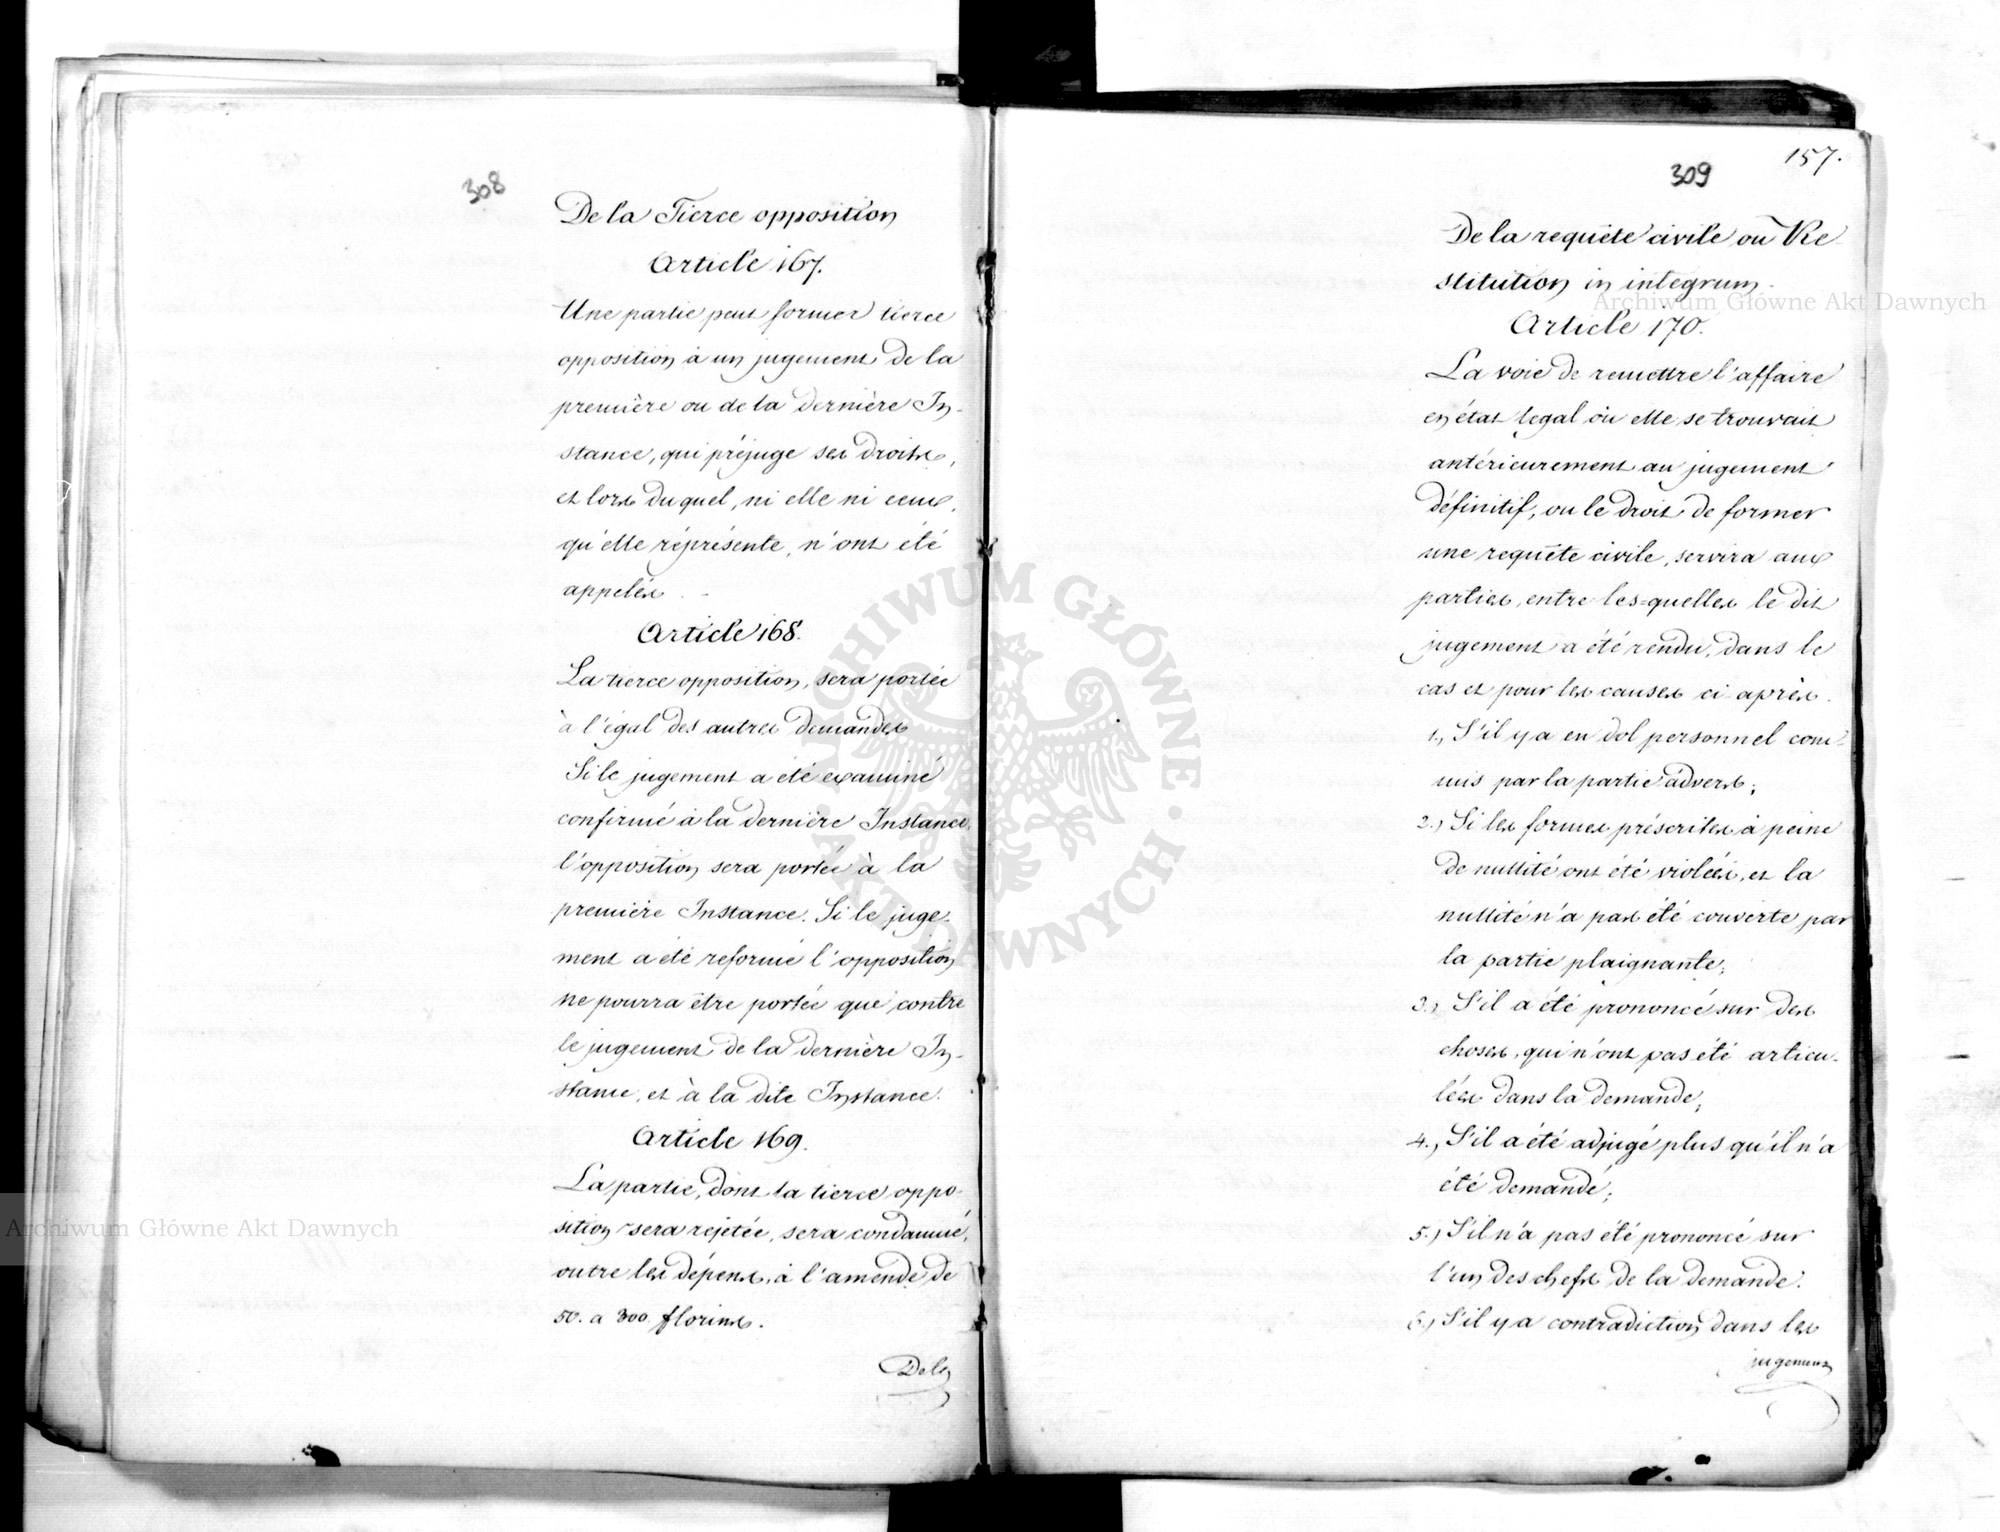 308
De la Tierce opposition
Article 167.
Une partie peut former tierce
opposition à un jugement de la
première ou de la dernière In-
stance, qui préjuge ses droits,
et lors duquel, ni elle ni ceux,
qu'elle réprésente, n'ont été
appelés.
Article 168.
La tierce opposition, sera portée
à l'égal des autres demandes
Si le jugement a été examiné
confirmé à la dernière Instance,
l'opposition sera portée à la
première Instance. Si le juge-
ment a été reformé l'opposition
ne pourra être portée que contre
le jugement de la dernière In-
stance, et à la dite Instance.
Article 169.
La partie, dont la tierce oppo-
sition sera rejetée, sera condamné,
outre les dépens, à l'amende de
50. a 300 florins.
De la
157.
309
De la requête civile ou Re-
stitution in integrum.
Article 170.
La voie de remettre l'affaire
en état legal où elle se trouvait
antérieurement au jugement
définitif, ou le droit de former
une requête civile, servira aux
parties, entre les=quelles le dit
jugement a été rendu, dans le
cas et pour les causes ci après.
1., S'il y a eu dol personnel com-
mis par la partie adverse;
2., Si les formes préscrites à peine
de nullité ont été violées, et la
nullité n'a pas été couverte par
la partie plaignante;
3., S'il a été prononcé sur des
choses, qui n'ont pas été articu-
lées dans la demande;
4., S'il a été adjugé plus qu'il n'a
été demandé;
5., S'il n'a pas été prononcé sur
l'un des chefs de la demande.
6., S'il y a contradiction dans les
jugemens
Archiwum Główne Akt Dawnych
Archiwum Główne Akt Dawnych
ARCHIWUM GŁÓWNE · AKT DAWNYCH ·